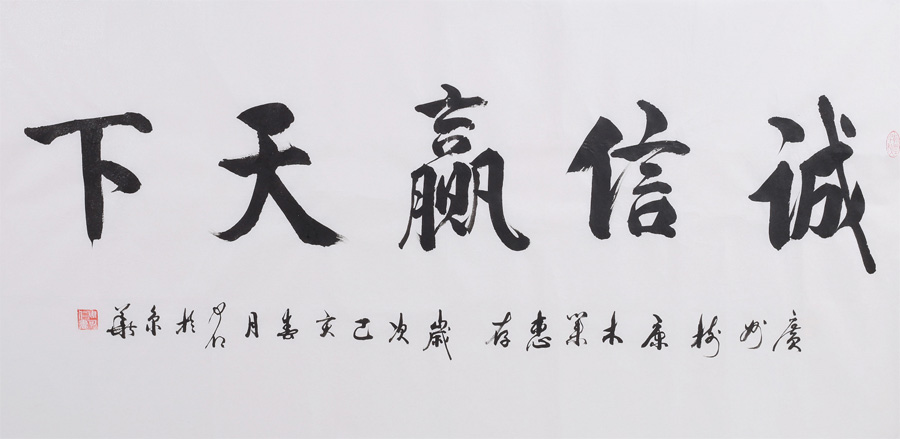 诚信赢天下
廣州树康木業惠存 歲次己亥春月 於京華